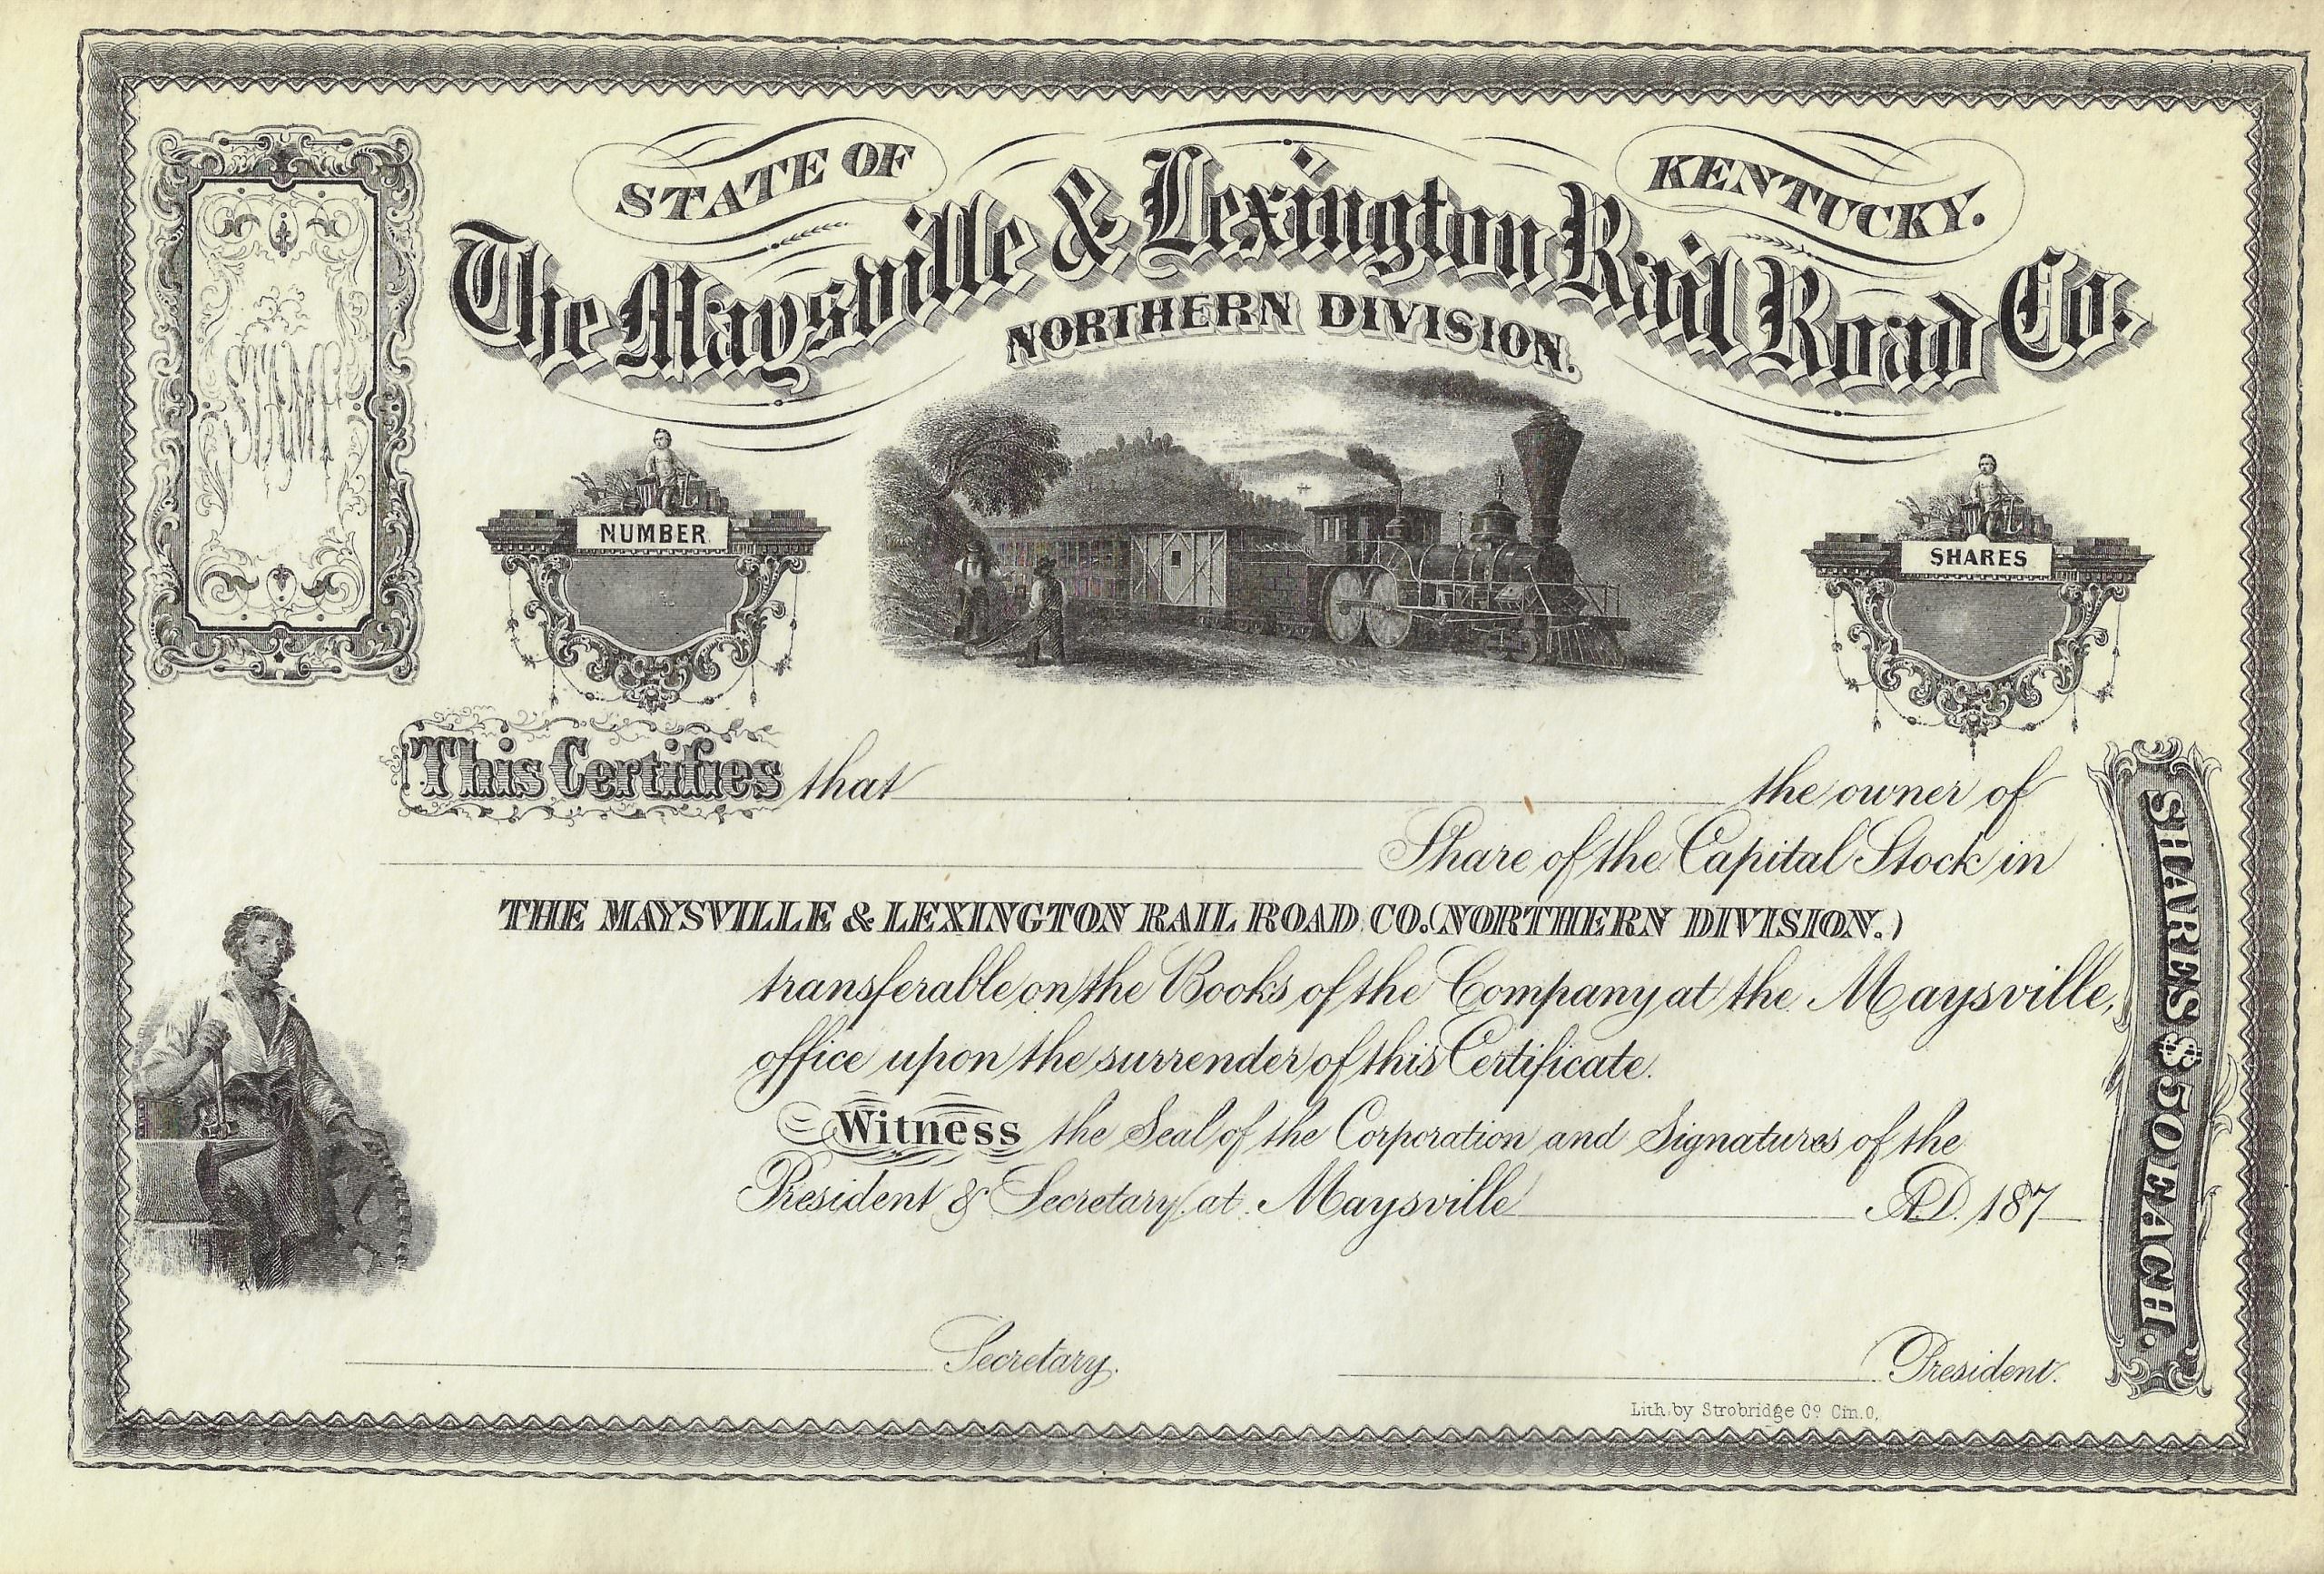 STATE OF KENTUCKY.
The Maysville & Lexington Rail Road Co.
NORTHERN DIVISION.
STAMP
NUMBER
SHARES
This Certifies that the owner of
Share of the Capital Stock in
THE MAYSVILLE & LEXINGTON RAIL ROAD CO. (NORTHERN DIVISION.)
transferable on the Books of the Company at the Maysville,
office upon the surrender of this Certificate.
Witness the Seal of the Corporation and Signatures of the
President & Secretary, at Maysville A.D. 187
SHARES $50 EACH.
Secretary.
President.
Lith. by Strobridge Co. Cin. O.